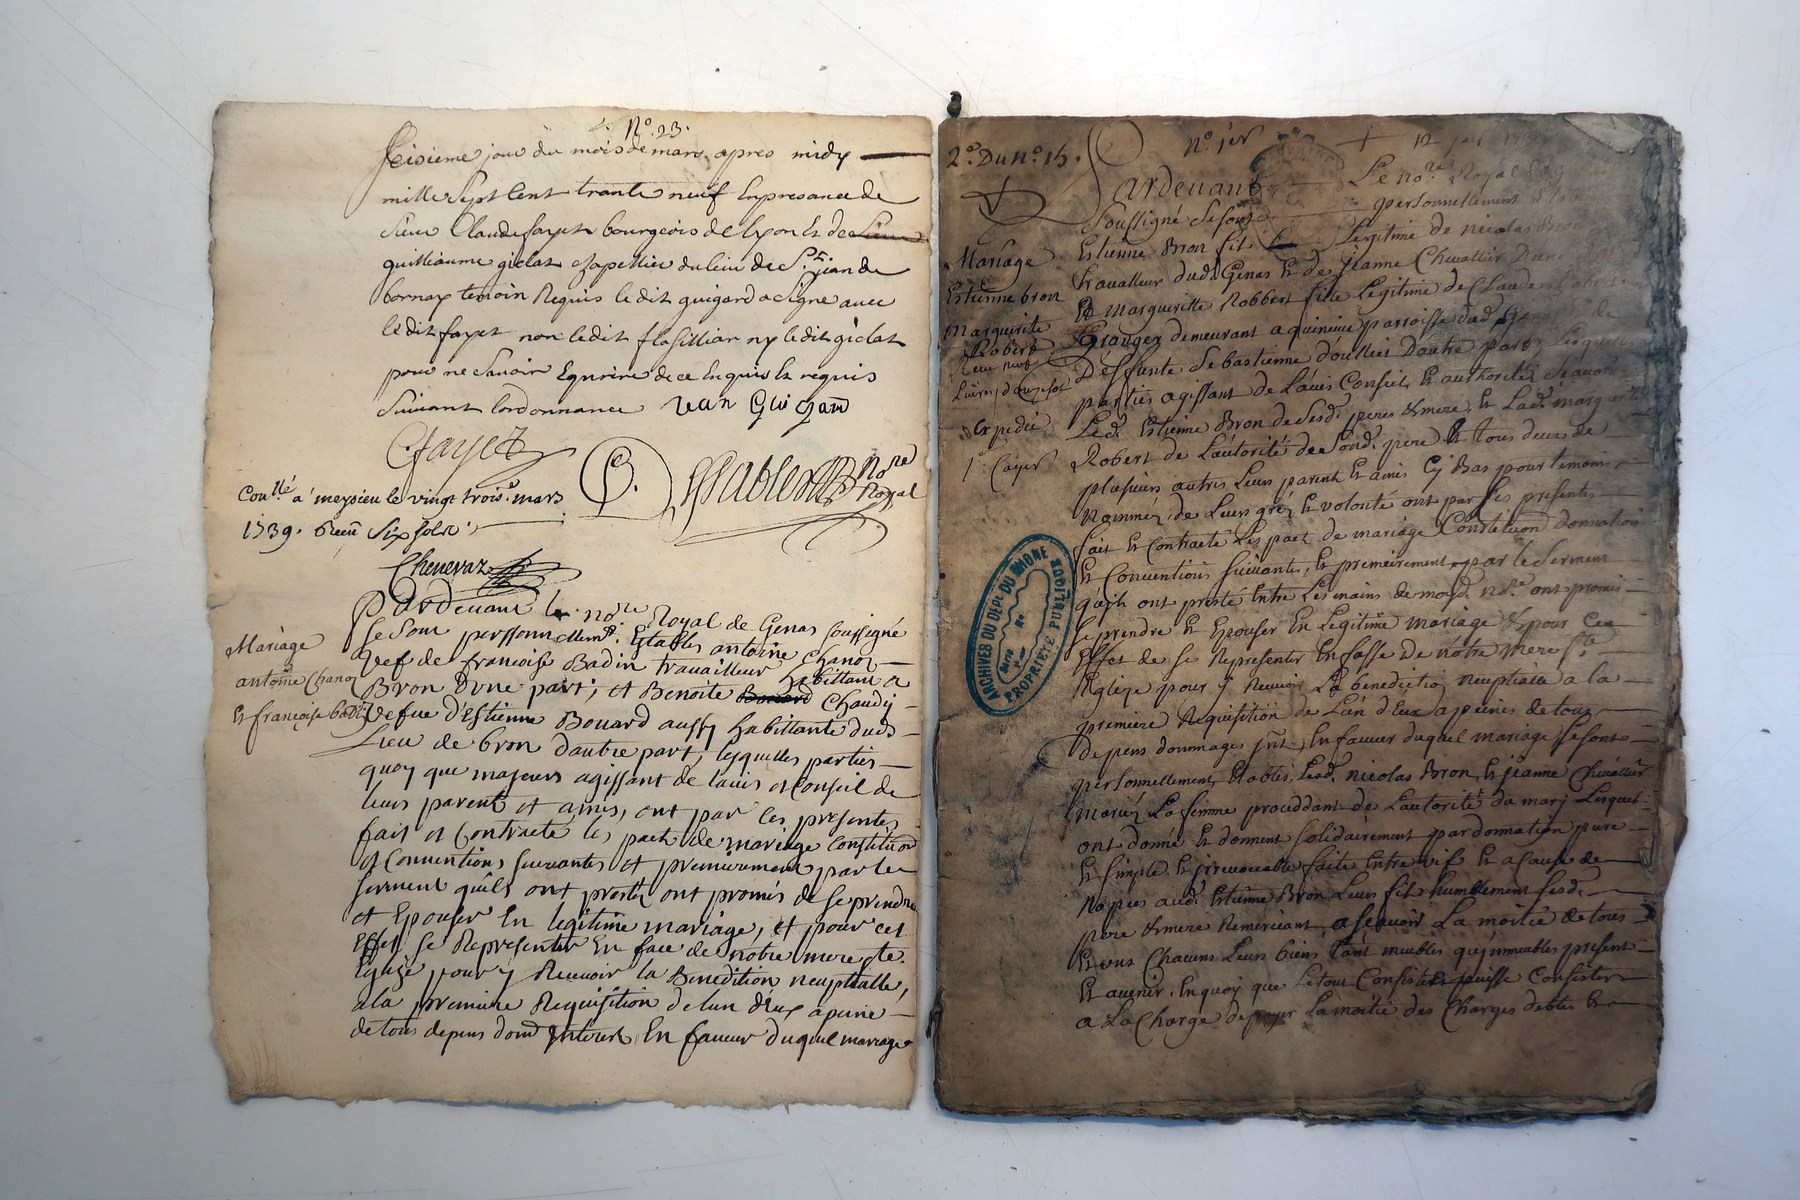 N.º 23.
seisieme jour du mois de mars apres midy
mille sept cent trante neuf En presance de
sieur Claude fayet bourgeois de Lyon Et de
guilliaume giclat chapellier du lieu de S.t jean de
bornay temoin Requis le dit guigard a signé avec
le dit fayet non le dit flasillian ny le dit giclat
pour ne savoir Ecrire de ce Enquis Et requis
suivant L'ordonnance Jean Guigard
C fayet
Nore Royal
Con.llé a meysieu le vingt trois.e mars
1739. Reçu Six sols
Chenevaz
Pardevant le no.re Royal de Genas soussigné
se sont personnellem.t Etablis antoine Chanoz
Vef de francoise Badin travailleur habittant a
Bron d'une part, et Benoite Chaudy
Mariage
antoine Chanoz
Et françoise badin
Vefue d'Estienne Bouard aussy habittante dud.
Lieu de bron d'autre part, lesquelles parties
quoy que majeurs agissant de l'avis et Conseil de
leurs parent et amis, ont par ces presentes
fait et Contracté les pact de mariage Constitution
et Conventions suivantes et premierement par le
serment qu'ils ont presté ont promis de se prendre
et Epouser En legitime mariage, et pour cet
Effet se Representer En face de nôtre mere s.te
Eglize pour y Recevoir la Benedition neuptialle,
a la premiere Requisition de l'un d'eux a peine
de tous depens dom.e Interest, En faveur du quel mariage
2.º Du n.º 15.
N.º 1er
12
Pardevant Le no.re Royal
soussigné se sont personnellement
Mariage
Estienne bron
Marguerite
Robert
Expedié
1.r Cayer
Estienne Bron fils Legitime de nicolas Bron
travailleur dud. Genas Et de jeanne Chevallier D'une
Et Marguerite Robbert fille Legitime de Claude
Granger demeurant a quincieu parroisse dud.
Deffunte Sebastienne d'oullier D'autre part, Lesquelles
parties agissant de L'avis Conseil, Et authorité, sçavoir
Led. Estienne Bron de sesd. peres & mere, Et Lad. marguerite
Robert de L'autorité de sond. pere Et tous deux de
plusieurs autres Leurs parent Et amis Cy Bas pour temoins
Nommez, de Leurs gréz Et volonté ont par ses presentes
fait Et Contracté Les pact de mariage Constitution donnation
Et Conventions suivantes, Et premierement par le serment
qu'ils ont presté Entre Les mains de moyd. no.re ont promis
se prendre Et Epouser En Legitime mariage & pour Cet
Effet de se Representer En fasse De nôtre mere s.te
Eglize pour y Recevoir La benediction neuptialle a la
premiere Requisition de L'un d'Eux a peines de tous
depens dommages jnt., En faveur duquel mariage se sont
personnellement Etablis, Lesd. nicolas Bron, Et jeanne Chevallier
mariez La femme proceddant de L'autorité du mary Lesquels
ont donné Et donnent solidairement par donnation pure
Et simple Et jrrevocable faite Entre vifs Et a Cause de
Nopces aud. Estienne Bron Leurs fils humblement sesd.
pere & mere Remerciant, a sçavoir La moitié de tous
Et uns Chacuns Leurs biens tant meubles qu'jmmeubles present
Et avenir, En quoy que Le tout Consiste Et puisse Consister
a La Charge de payer La moitié des Charges debtes Et
ARCHIVES DU DÉPT DU RHÔNE
PROPRIÉTÉ PUBLIQUE